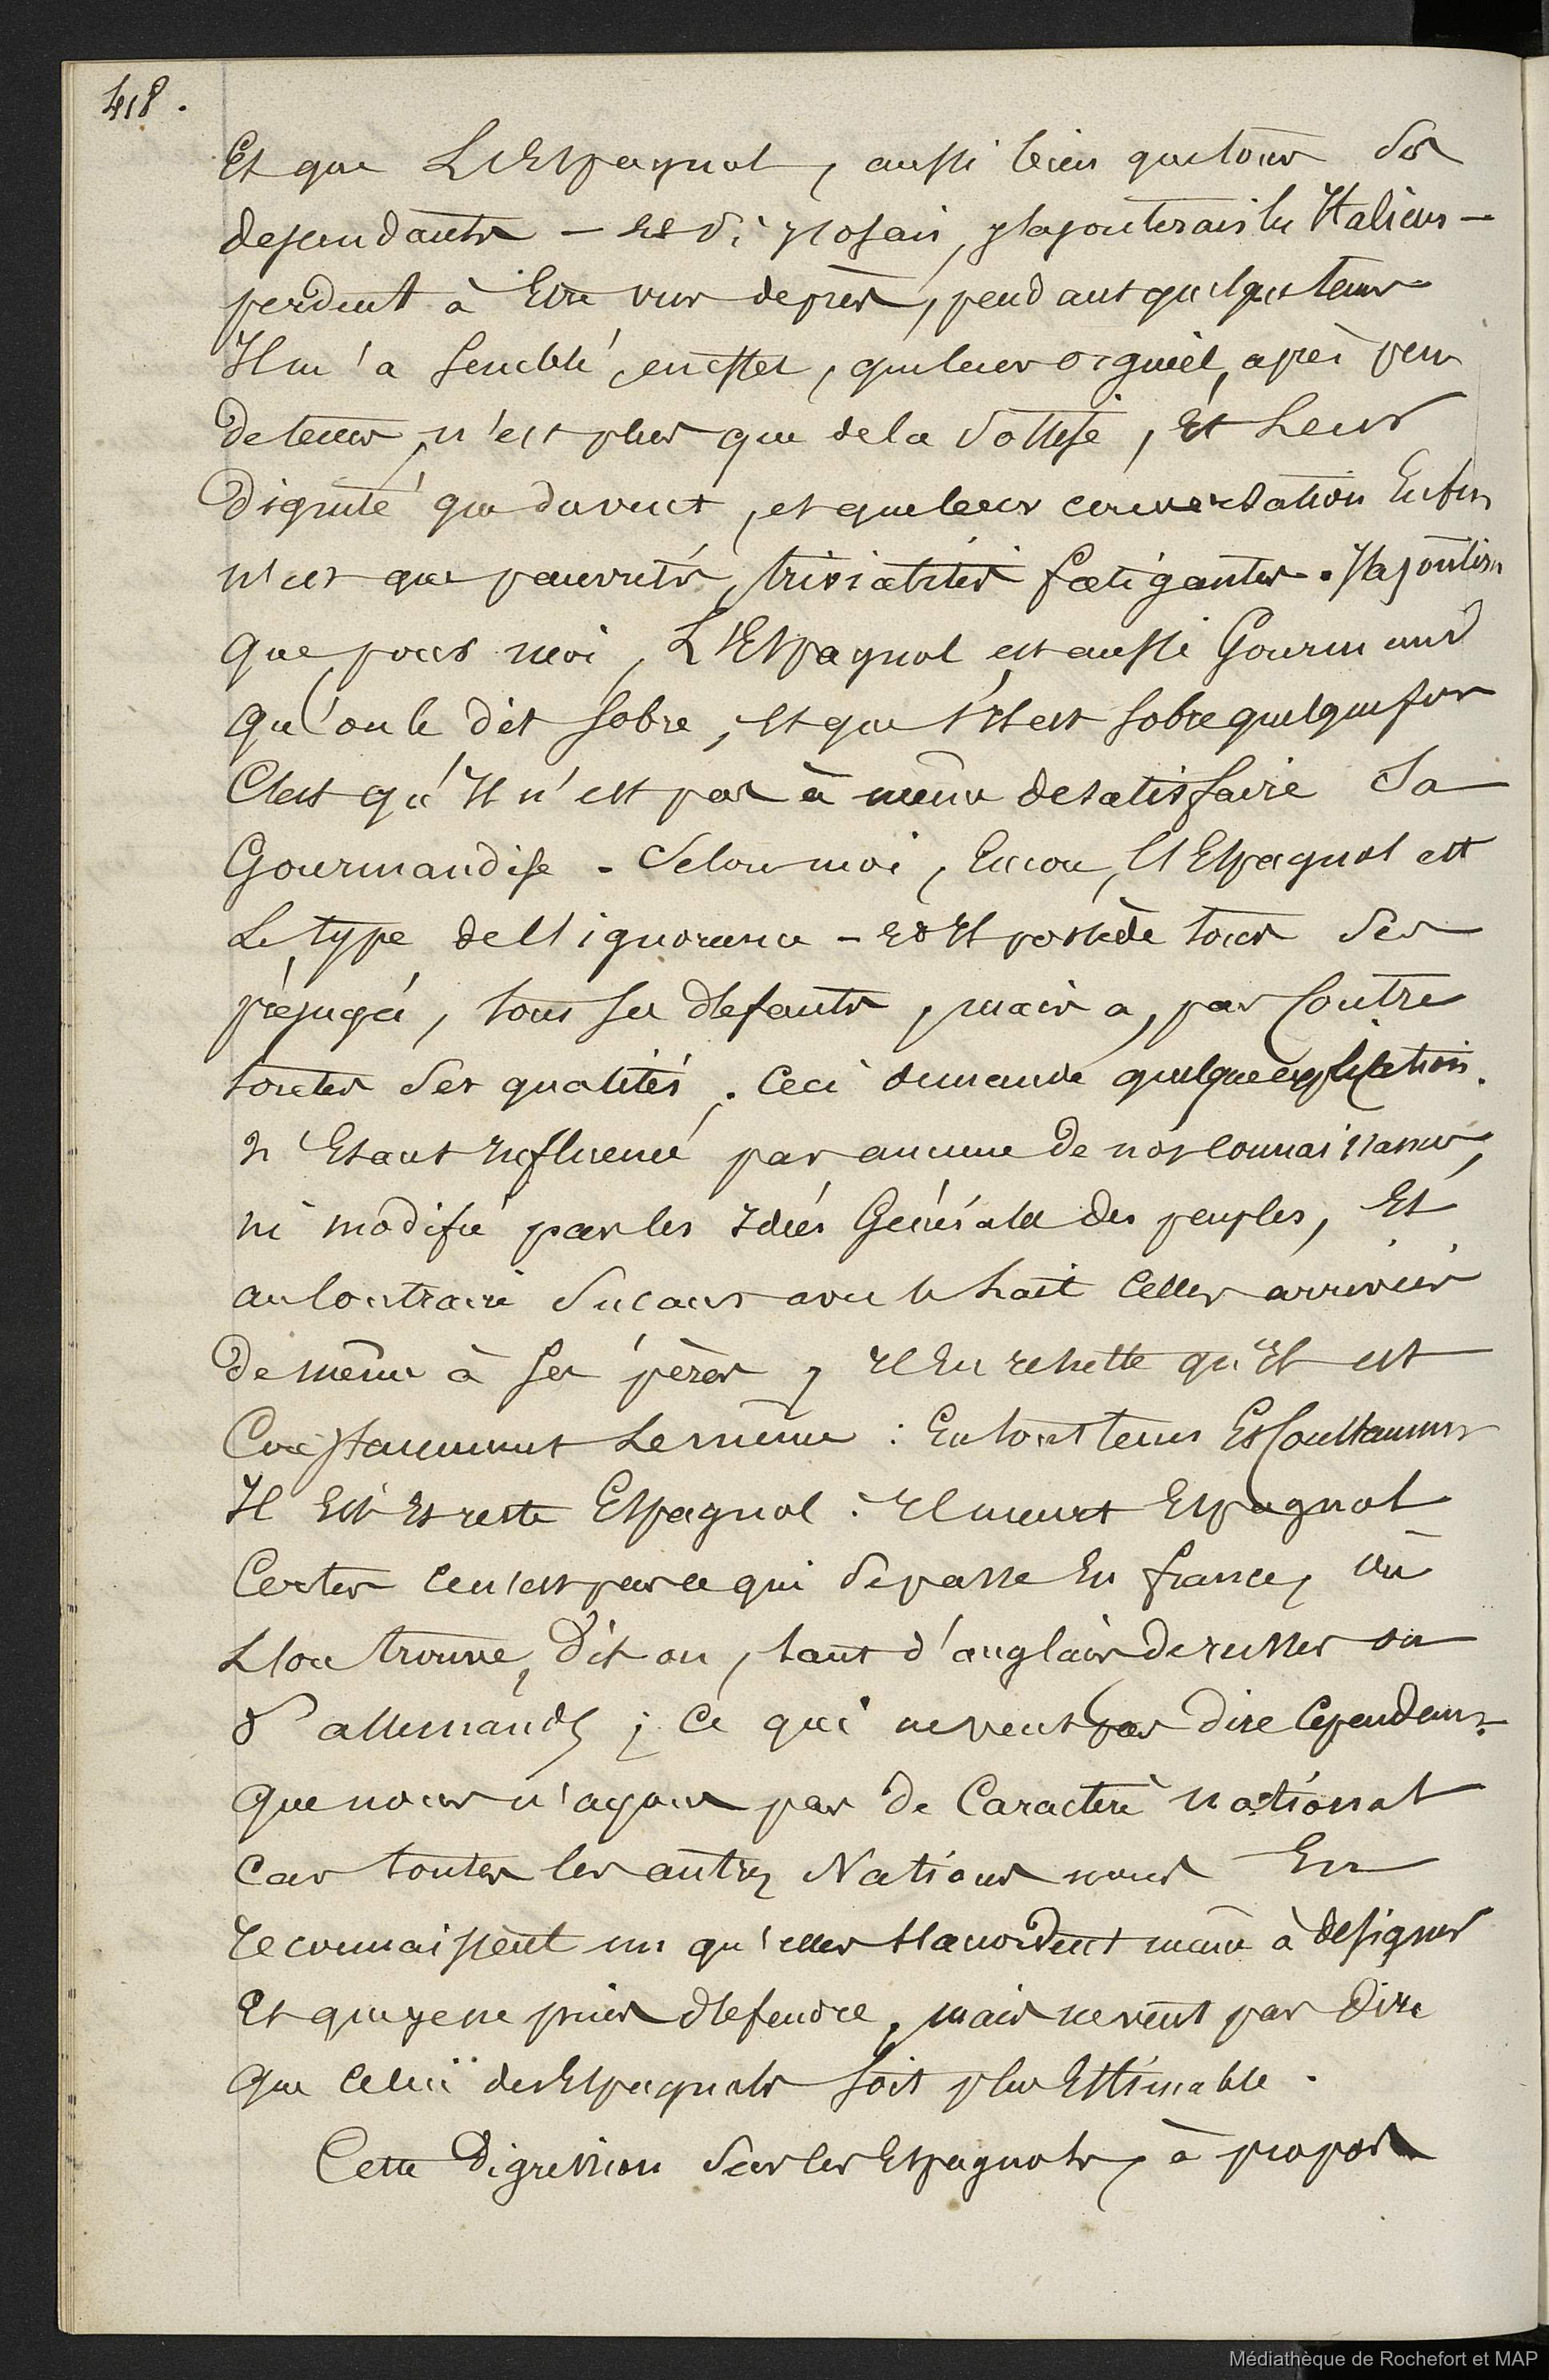 418.
Et que L'Espagnol, aussi bien que tous ses
descendants – et si j'osais, j'ajouterais les Italiens –
perdent à Etre vus de près, pendant quelque tems
Il m'a semblé, en effet, que leur orgueil, après peu
de tems, n'est plus que de la sottise, Et Leur
Dignité que du vent, et que leur conversation Enfin
n'est que pauvretés, trivialités fatigantes. J'ajouterai
que pour moi, L'Espagnol est aussi Gourmand
qu'on le dit sobre, Et que s'il est sobre quelquefois
C'est qu'Il n'est pas à même de satisfaire sa
Gourmandise. Selon moi, Encore, l'Espagnol est
Le type de l'ignorance – Et Il possède tous ses
préjugés, tous ses défauts, mais a, par Contre
toutes ses qualités. Ceci demande quelque explication.
N'Etant influencé par aucune de nos connaissances,
ni modifié par les Idées Générales des peuples, Et
au Contraire suçant avec le lait Celles arrivées
de même à ses pères, Il En résulte qu'Il est
Constamment Le même : En tout tems Et Constamment
Il Est Et reste Espagnol. Il meurt Espagnol
Certes ce n'est pas ce qui se passe En france, où
L'on trouve, Dit on, tant d'anglais de russes ou
d'allemands ; Ce qui ne veut pas dire Cependant
que nous n'ayons pas de Caractère national
Car toutes les autres Nations nous En
reconnaissent un qu'elles s'accordent même à désigner
Et que je ne puis défendre, mais ne veut pas Dire
que Celui des Espagnols soit plus Estimable.
Cette Digression sur les Espagnols, à propos
Médiathèque de Rochefort et MAP